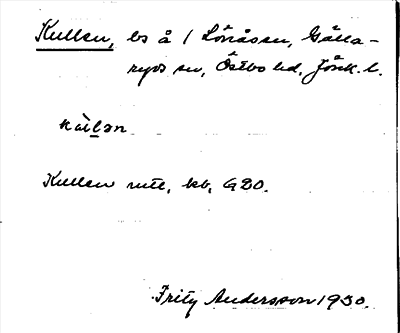 Kullen, bs å 1 Lönåsen, Gälla-
ryds sn, Östbo hd, Jönk. l.
Kullen mtl, kb, G20.
Fritz Andersson 1930.